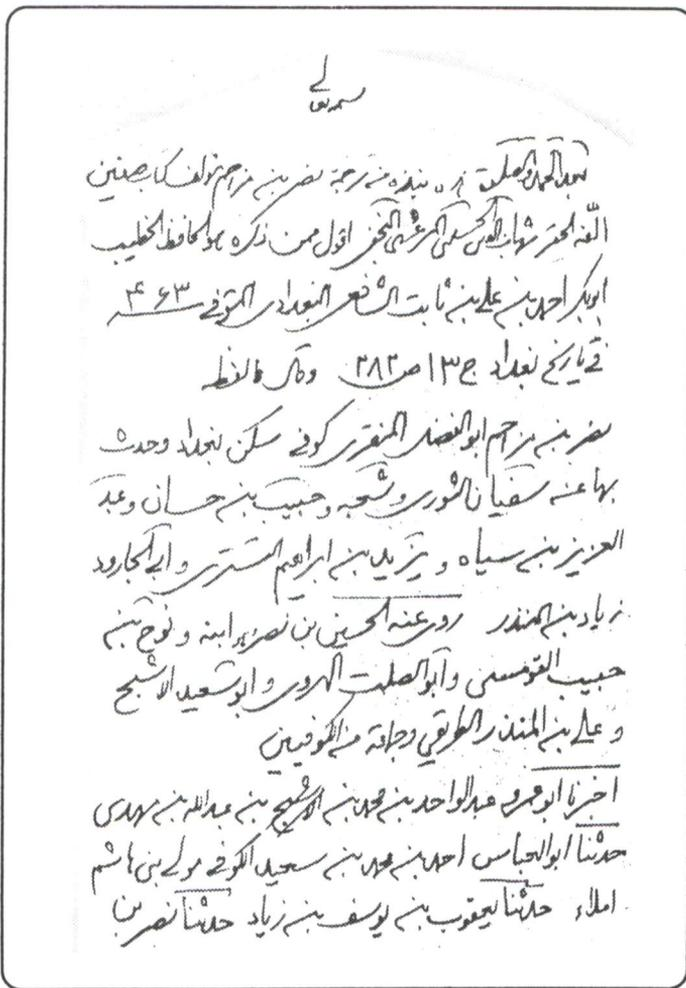 بسمه تعالى
بعد الحمد والصلوة فهذه نبذة من ترجمة نصر بن مزاحم مؤلف كتاب صفين
الفه الحقير شهاب الدين الحسيني المرعشي النجفي اقول ممن ذكره هو الحافظ الخطيب
ابو بكر احمد بن علي بن ثابت الشافعي البغدادي المتوفى ۴۶۳
في تاريخ بغداد ج ۱۳ ص ۲۸۲ وقال ما لفظه
نصر بن مزاحم ابو الفضل المنقري كوفي سكن بغداد وحدث
بها عن سفيان الثوري وشعبه وحبيب بن حسان وعبد
العزيز بن سياه ويزيد بن ابراهيم التستري وابي الجارود
زياد بن المنذر روى عنه الحسين بن نصر ابنه ونوح بن
حبيب القومسي وابو الصلت الهروي وابو سعيد الاشج
وعلي بن المنذر الطريقي وجماعة من الكوفيين
اخبرنا ابو عمرو عبد الواحد بن محمد بن عبد الله بن مهدي
حدثنا ابو العباس احمد بن محمد بن سعيد الكوفي مولى بني هاشم
املاء حدثنا يعقوب بن يوسف بن زياد حدثنا نصر بن